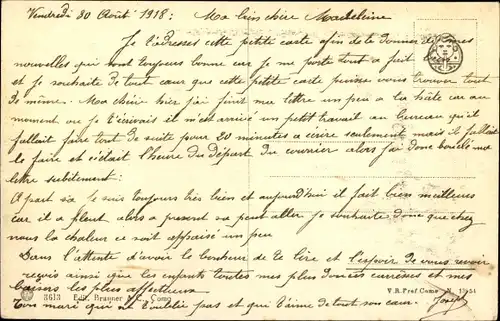 Vendredi 30 Août 1918: Ma bien chère Madeleine
Je t'adresse cette petite carte afin de te donner de mes
nouvelles qui sont toujours bonne car je me porte tout a fait
et je souhaite de tout cœur que cette petite carte puisse vous trouver tout
de même. Ma chérie hier j'ai finit ma lettre un peu a la hâte car au
moment ou je t'écrivais il m'est arrivé un petit travail au bureau qu'il
fallait faire tout de suite pour 20 minutes a écrire seulement mais il fallait
le faire et c'était l'heure du départ du courrier alors j'ai donc bouclé ma
lettre subitement:
A part sa je suis toujours très bien et aujourd'hui il fait bien meilleure
car il a pleut alors a present sa peut aller. Je souhaite donc que chez
nous la chaleur ce soit appaisé un peu
Dans l'attente d'avoir le bonheur de te lire et l'espoir de vous revoir
reçois ainsi que les enfants toutes mes plus douces caresses et mes
baisers les plus affectueux
Ton mari qui ne t'oublie pas et que t'aime de tout son cœur. Joseph
3613 Edit. Brunner & C., Como
V. R. Pref. Como